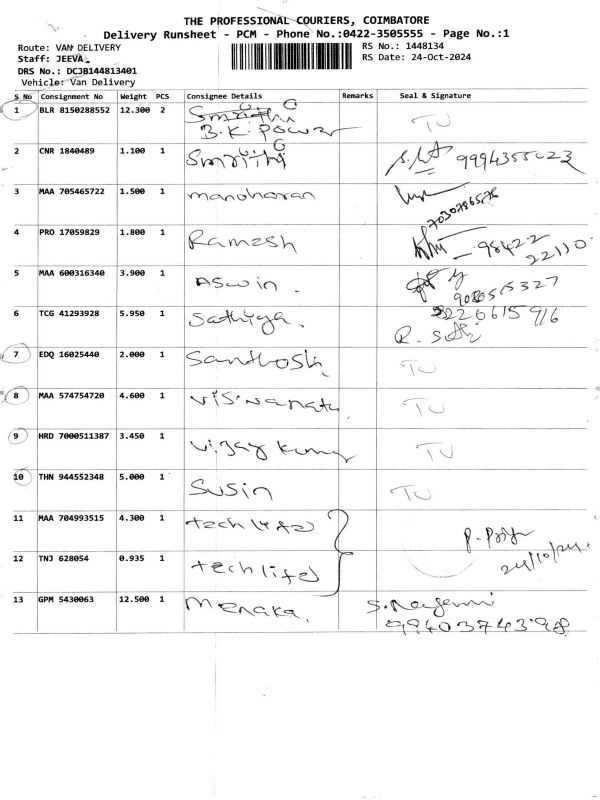 THE PROFESSIONAL COURIERS, COIMBATORE
Delivery Runsheet - PCM - Phone No.:0422-3505555 - Page No.:1
Route: VAN DELIVERY RS No.: 1448134
Staff: JEEVA RS Date: 24-Oct-2024
DRS No.: DCJB144813401
Vehicle: Van Delivery
S No Consignment No Weight PCS Consignee Details Remarks Seal & Signature
1 BLR 8150288552 12.300 2 Smrithi TU
B.K. power
2 CNR 1840489 1.100 1 Smrithi
3 MAA 705465722 1.500 1 manoharan
7030786576
4 PRO 17059829 1.800 1 Ramesh 98422
22110
5 MAA 600316340 3.900 1 Aswin.
6 TCG 41293928 5.950 1 Sathiya.
7 EDQ 16025440 2.000 1 Santhosh TU
8 MAA 574754720 4.600 1 Viswanath TU
9 HRD 7000511387 3.450 1 Vijay Kumar TU
10 THN 944552348 5.000 1 Susin TU
11 MAA 704993515 4.300 1 tech life
24/10/24
12 TNJ 628054 0.935 1 tech life
13 GPM 5430063 12.500 1 Menaka.
9940374398